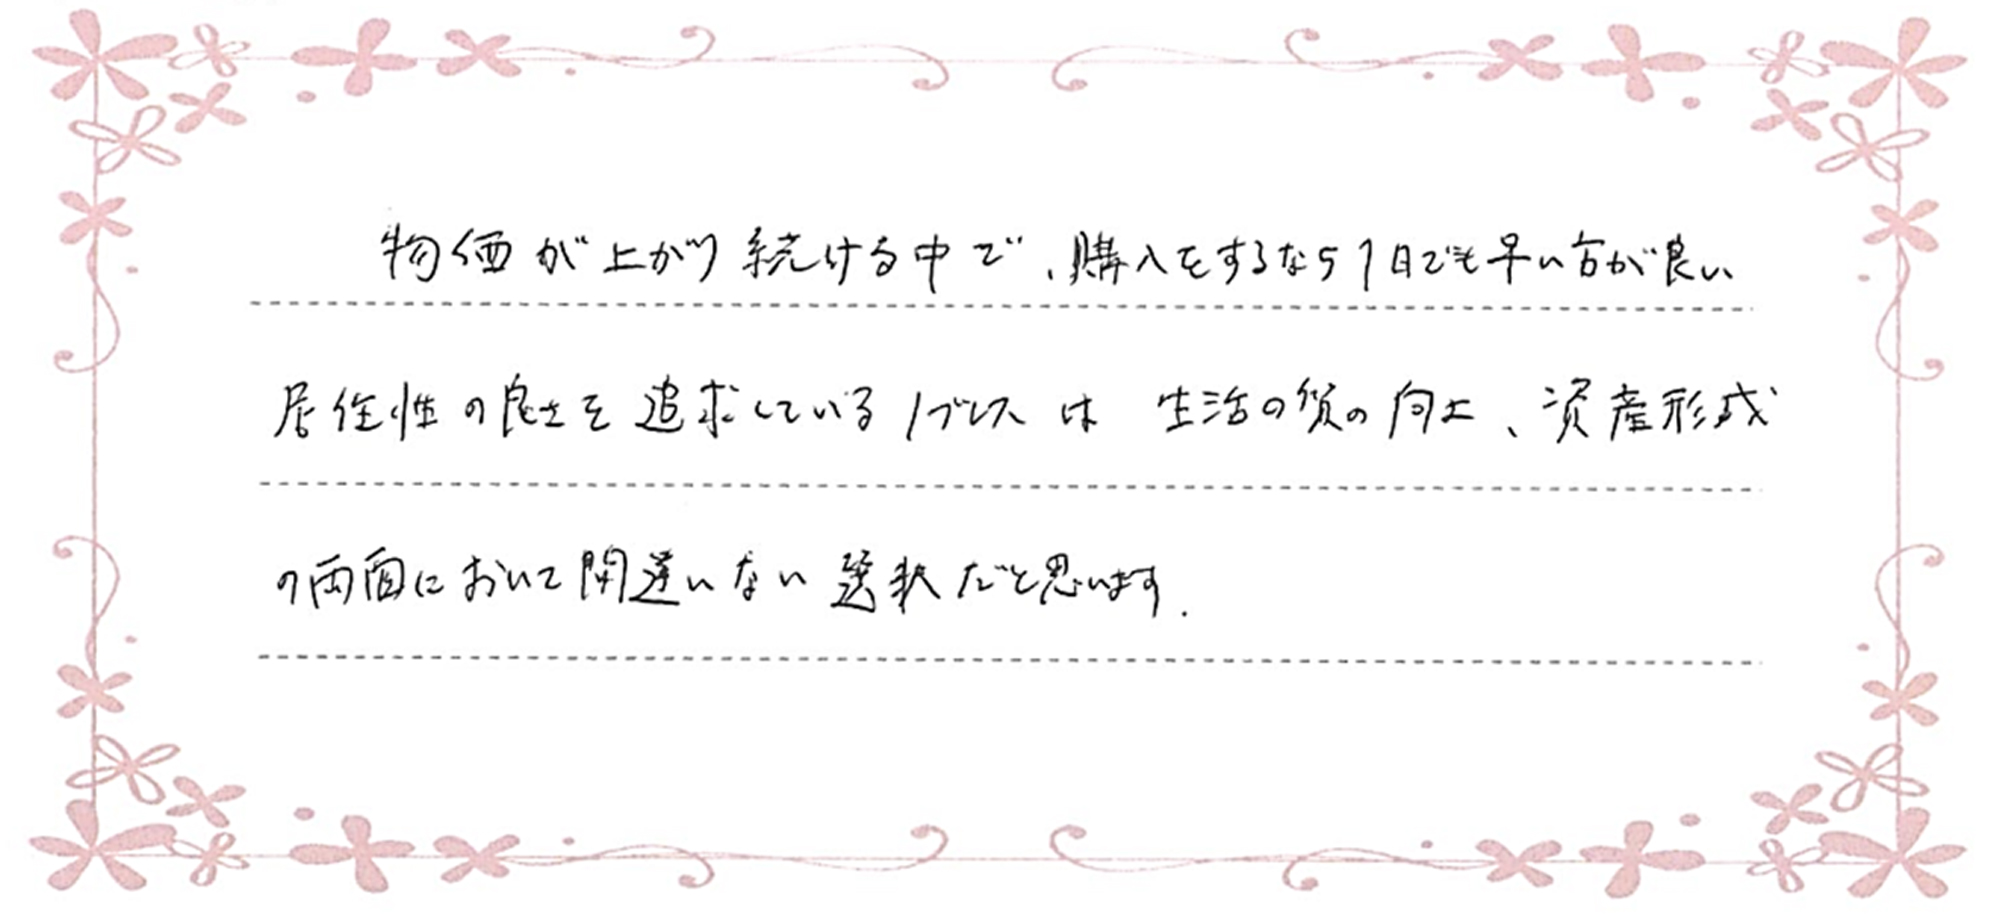 物価が上がり続ける中で、購入をするなら1日でも早い方が良い
居住性の良さを追求しているノブレスは 生活の質の向上、資産形成
の両面において間違いない選択だと思います.